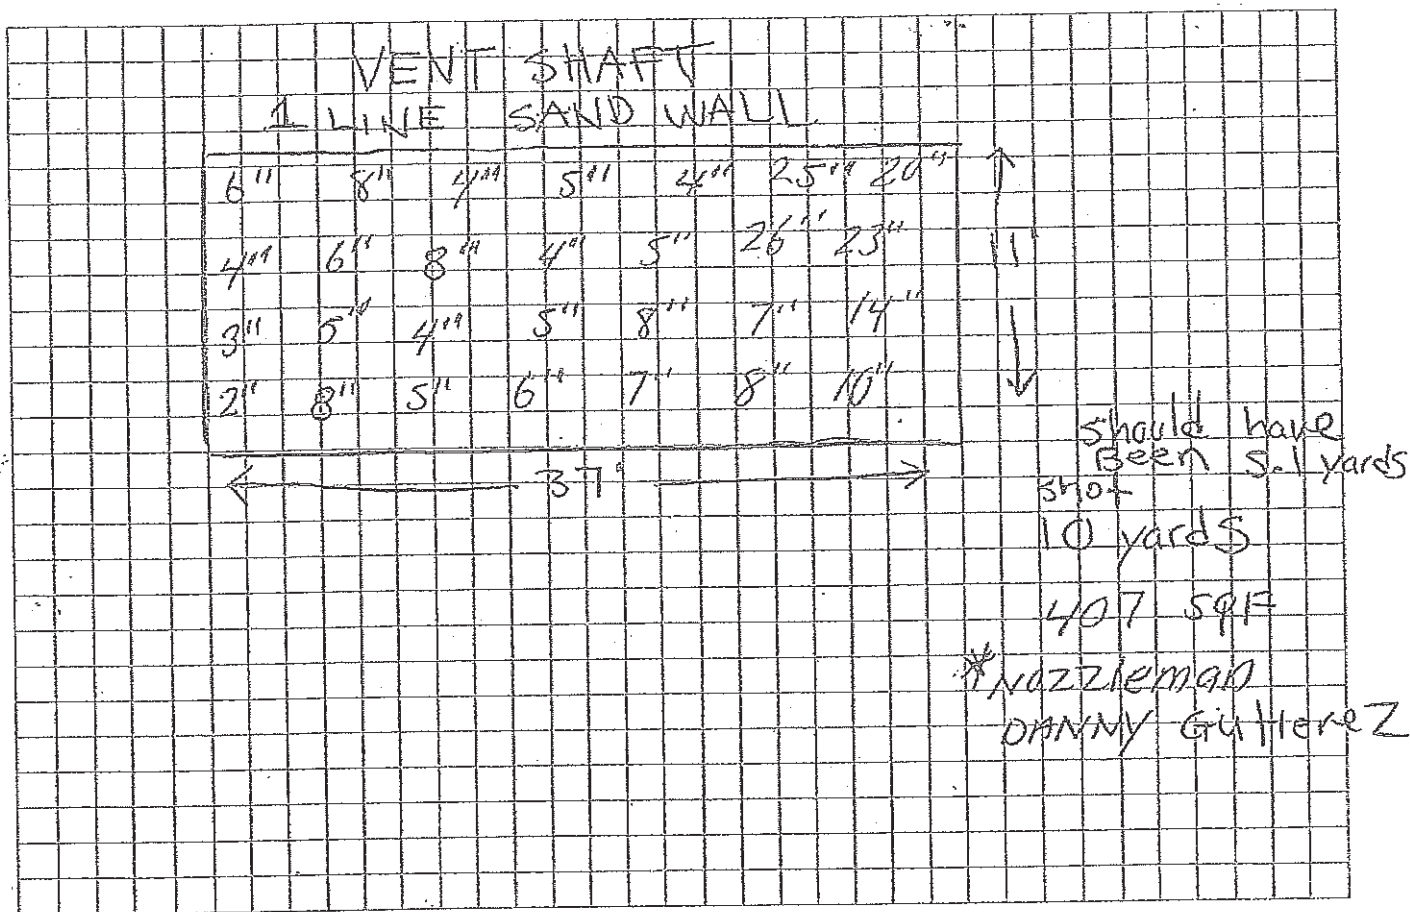 VENT SHAFT
1 LINE SAND WALL
6" 8" 4" 5" 4" 25" 20"
4" 6" 8" 4" 5" 26" 23"
3" 5" 4" 5" 8" 7" 14"
2" 8" 5" 6" 7" 8" 10"
11'
37'
should have
Been 5.1 yards
shot
10 yards
407 SqF
*Nozzleman
DANNY GutiereZ